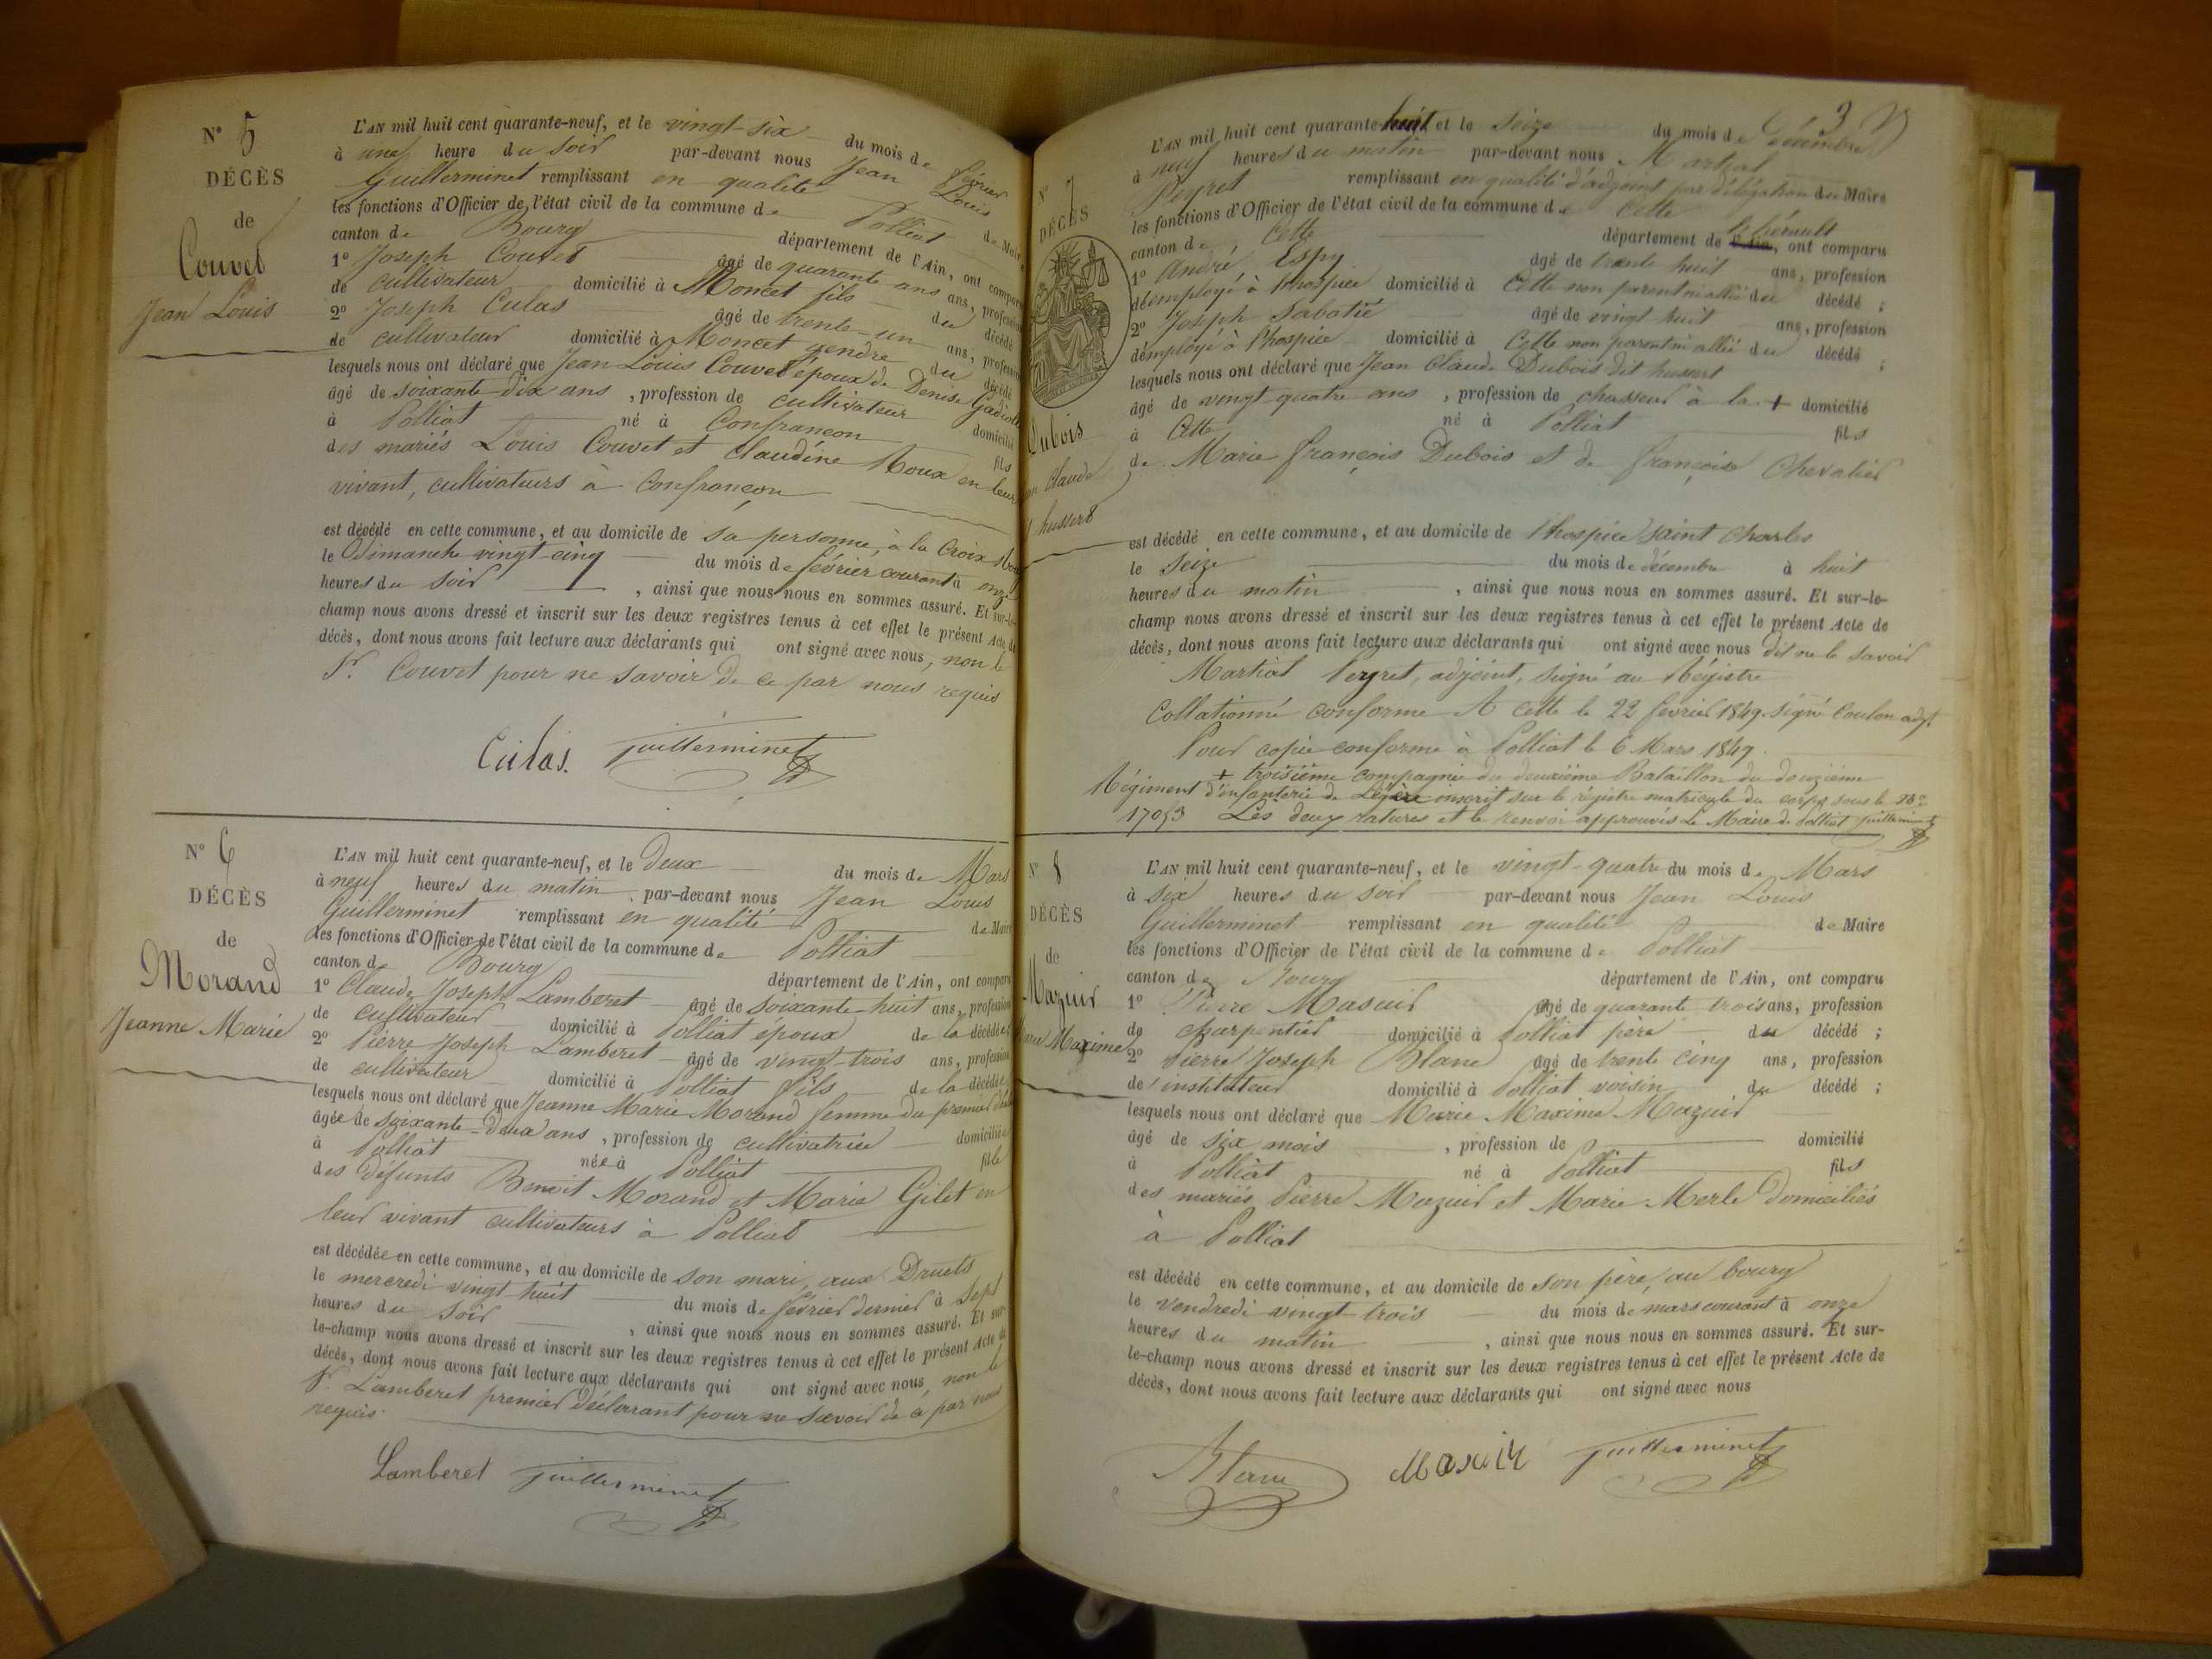 N° 5
DÉCÈS
de
Couvet
Jean Louis
L'AN mil huit cent quarante-neuf, et le vingt-six du mois de février
à une heure du soir par-devant nous Jean Louis
Guillerminet remplissant en qualité de Maire
les fonctions d'Officier de l'état civil de la commune de Polliat
canton de Bourg département de l'Ain, ont comparu
1° Joseph Couvet âgé de quarante ans ans, profession
de cultivateur domicilié à Moncet fils du décédé
2° Joseph Culas âgé de trente-un ans, profession
de cultivateur domicilié à Moncet gendre du décédé
lesquels nous ont déclaré que Jean Louis Couvet époux de Denise
âgé de soixante dix ans , profession de cultivateur domicilié
à Polliat né à Confrançon fils
des mariés Louis Couvet et Claudine Roux en leur
vivant, cultivateurs à Confrançon
est décédé en cette commune, et au domicile de sa personne, à la Croix
le Dimanche vingt-cinq du mois de février courant à onze
heures du soir , ainsi que nous nous en sommes assuré. Et sur-le-
champ nous avons dressé et inscrit sur les deux registres tenus à cet effet le présent Acte de
décès, dont nous avons fait lecture aux déclarants qui ont signé avec nous, non le
Sr. Couvet pour ne savoir de ce par nous requis
Culas. Guillerminet
N° 6
DÉCÈS
de
Morand
Jeanne Marie
L'AN mil huit cent quarante-neuf, et le deux du mois de Mars
à neuf heures du matin par-devant nous Jean Louis
Guillerminet remplissant en qualité de Maire
les fonctions d'Officier de l'état civil de la commune de Polliat
canton d Bourg département de l'Ain, ont comparu
1° Claude Joseph Lamberet âgé de soixante-huit ans, profession
de cultivateur domicilié à Polliat époux de la décédée
2° Pierre Joseph Lamberet âgé de vingt-trois ans, profession
de cultivateur domicilié à Polliat fils de la décédée
lesquels nous ont déclaré que Jeanne Marie Morand femme du premier
âgée de soixante-deux ans , profession de cultivatrice domiciliée
à Polliat née à Polliat fille
des défunts Benoit Morand et Marie Gilet en
leur vivant cultivateurs à Polliat
est décédée en cette commune, et au domicile de son mari, aux Druets
le mercredi vingt-huit du mois de février dernier à sept
heures du soir , ainsi que nous nous en sommes assuré. Et sur-
le-champ nous avons dressé et inscrit sur les deux registres tenus à cet effet le présent Acte de
décès, dont nous avons fait lecture aux déclarants qui ont signé avec nous, non le
Sr. Lamberet premier déclarant pour ne savoir de ce par nous
requis.
Lamberet Guillerminet
3
N° 7
DÉCÈS
Dubois
Claude
hussert
L'AN mil huit cent quarante-huit et le seize du mois de décembre
à neuf heures du matin par-devant nous Martial
Peyret remplissant en qualité d'adjoint par délégation du Maire
les fonctions d'Officier de l'état civil de la commune de Cette
canton de Cette département de l'hérault, ont comparu
1° André Espy âgé de trente huit ans, profession
d'employé à l'hospice domicilié à Cette non parent ni allié du décédé ;
2° Joseph Sabatié âgé de vingt huit ans, profession
d'employé à l'hospice domicilié à Cette non parent ni allié du décédé ;
lesquels nous ont déclaré que Jean Claude Dubois dit hussert
âgé de vingt quatre ans , profession de chasseur à la + domicilié
à Cette né à Polliat fils
de Marie François Dubois et de Françoise Chevalier
est décédé en cette commune, et au domicile de l'hospice saint Charles
le Seize du mois de décembre à huit
heures du matin , ainsi que nous nous en sommes assuré. Et sur-le-
champ nous avons dressé et inscrit sur les deux registres tenus à cet effet le présent Acte de
décès, dont nous avons fait lecture aux déclarants qui ont signé avec nous dit ne le savoir
Martial Peyret, adjoint, signé au Régistre
Collationné conforme A Cette le 22 fevrier 1849. signé Coulon adjt.
Pour copie conforme à Polliat le 6 Mars 1849.
+ troisième compagnie du deuxième Bataillon du douzième
Régiment d'infanterie de Légère inscrit sur le régistre matricule du corps sous le No.
17053 Les deux ratures et le renvoi approuvés Le Maire de Polliat Guillerminet
N° 8
DÉCÈS
de
Mazuir
Marie Maxime
L'AN mil huit cent quarante-neuf, et le vingt-quatre du mois de Mars
à six heures du soir par-devant nous Jean Louis
Guillerminet remplissant en qualité de Maire
les fonctions d'Officier de l'état civil de la commune de Polliat
canton de Bourg département de l'Ain, ont comparu
1° Pierre Masuir âgé de quarante trois ans, profession
de charpentier domicilié à Polliat père du décédé ;
2° Pierre Joseph Blanc âgé de trente cinq ans, profession
de instituteur domicilié à Polliat voisin du décédé ;
lesquels nous ont déclaré que Marie Maxime Mazuir
âgé de six mois , profession de domicilié
à Polliat né à Polliat fils
des mariés Pierre Mazuir et Marie Merle domiciliés
à Polliat
est décédé en cette commune, et au domicile de son père, au bourg
le vendredi vingt-trois du mois de mars courant à onze
heures du matin , ainsi que nous nous en sommes assuré. Et sur-
le-champ nous avons dressé et inscrit sur les deux registres tenus à cet effet le présent Acte de
décès, dont nous avons fait lecture aux déclarants qui ont signé avec nous
Blanc Masuir Guillerminet